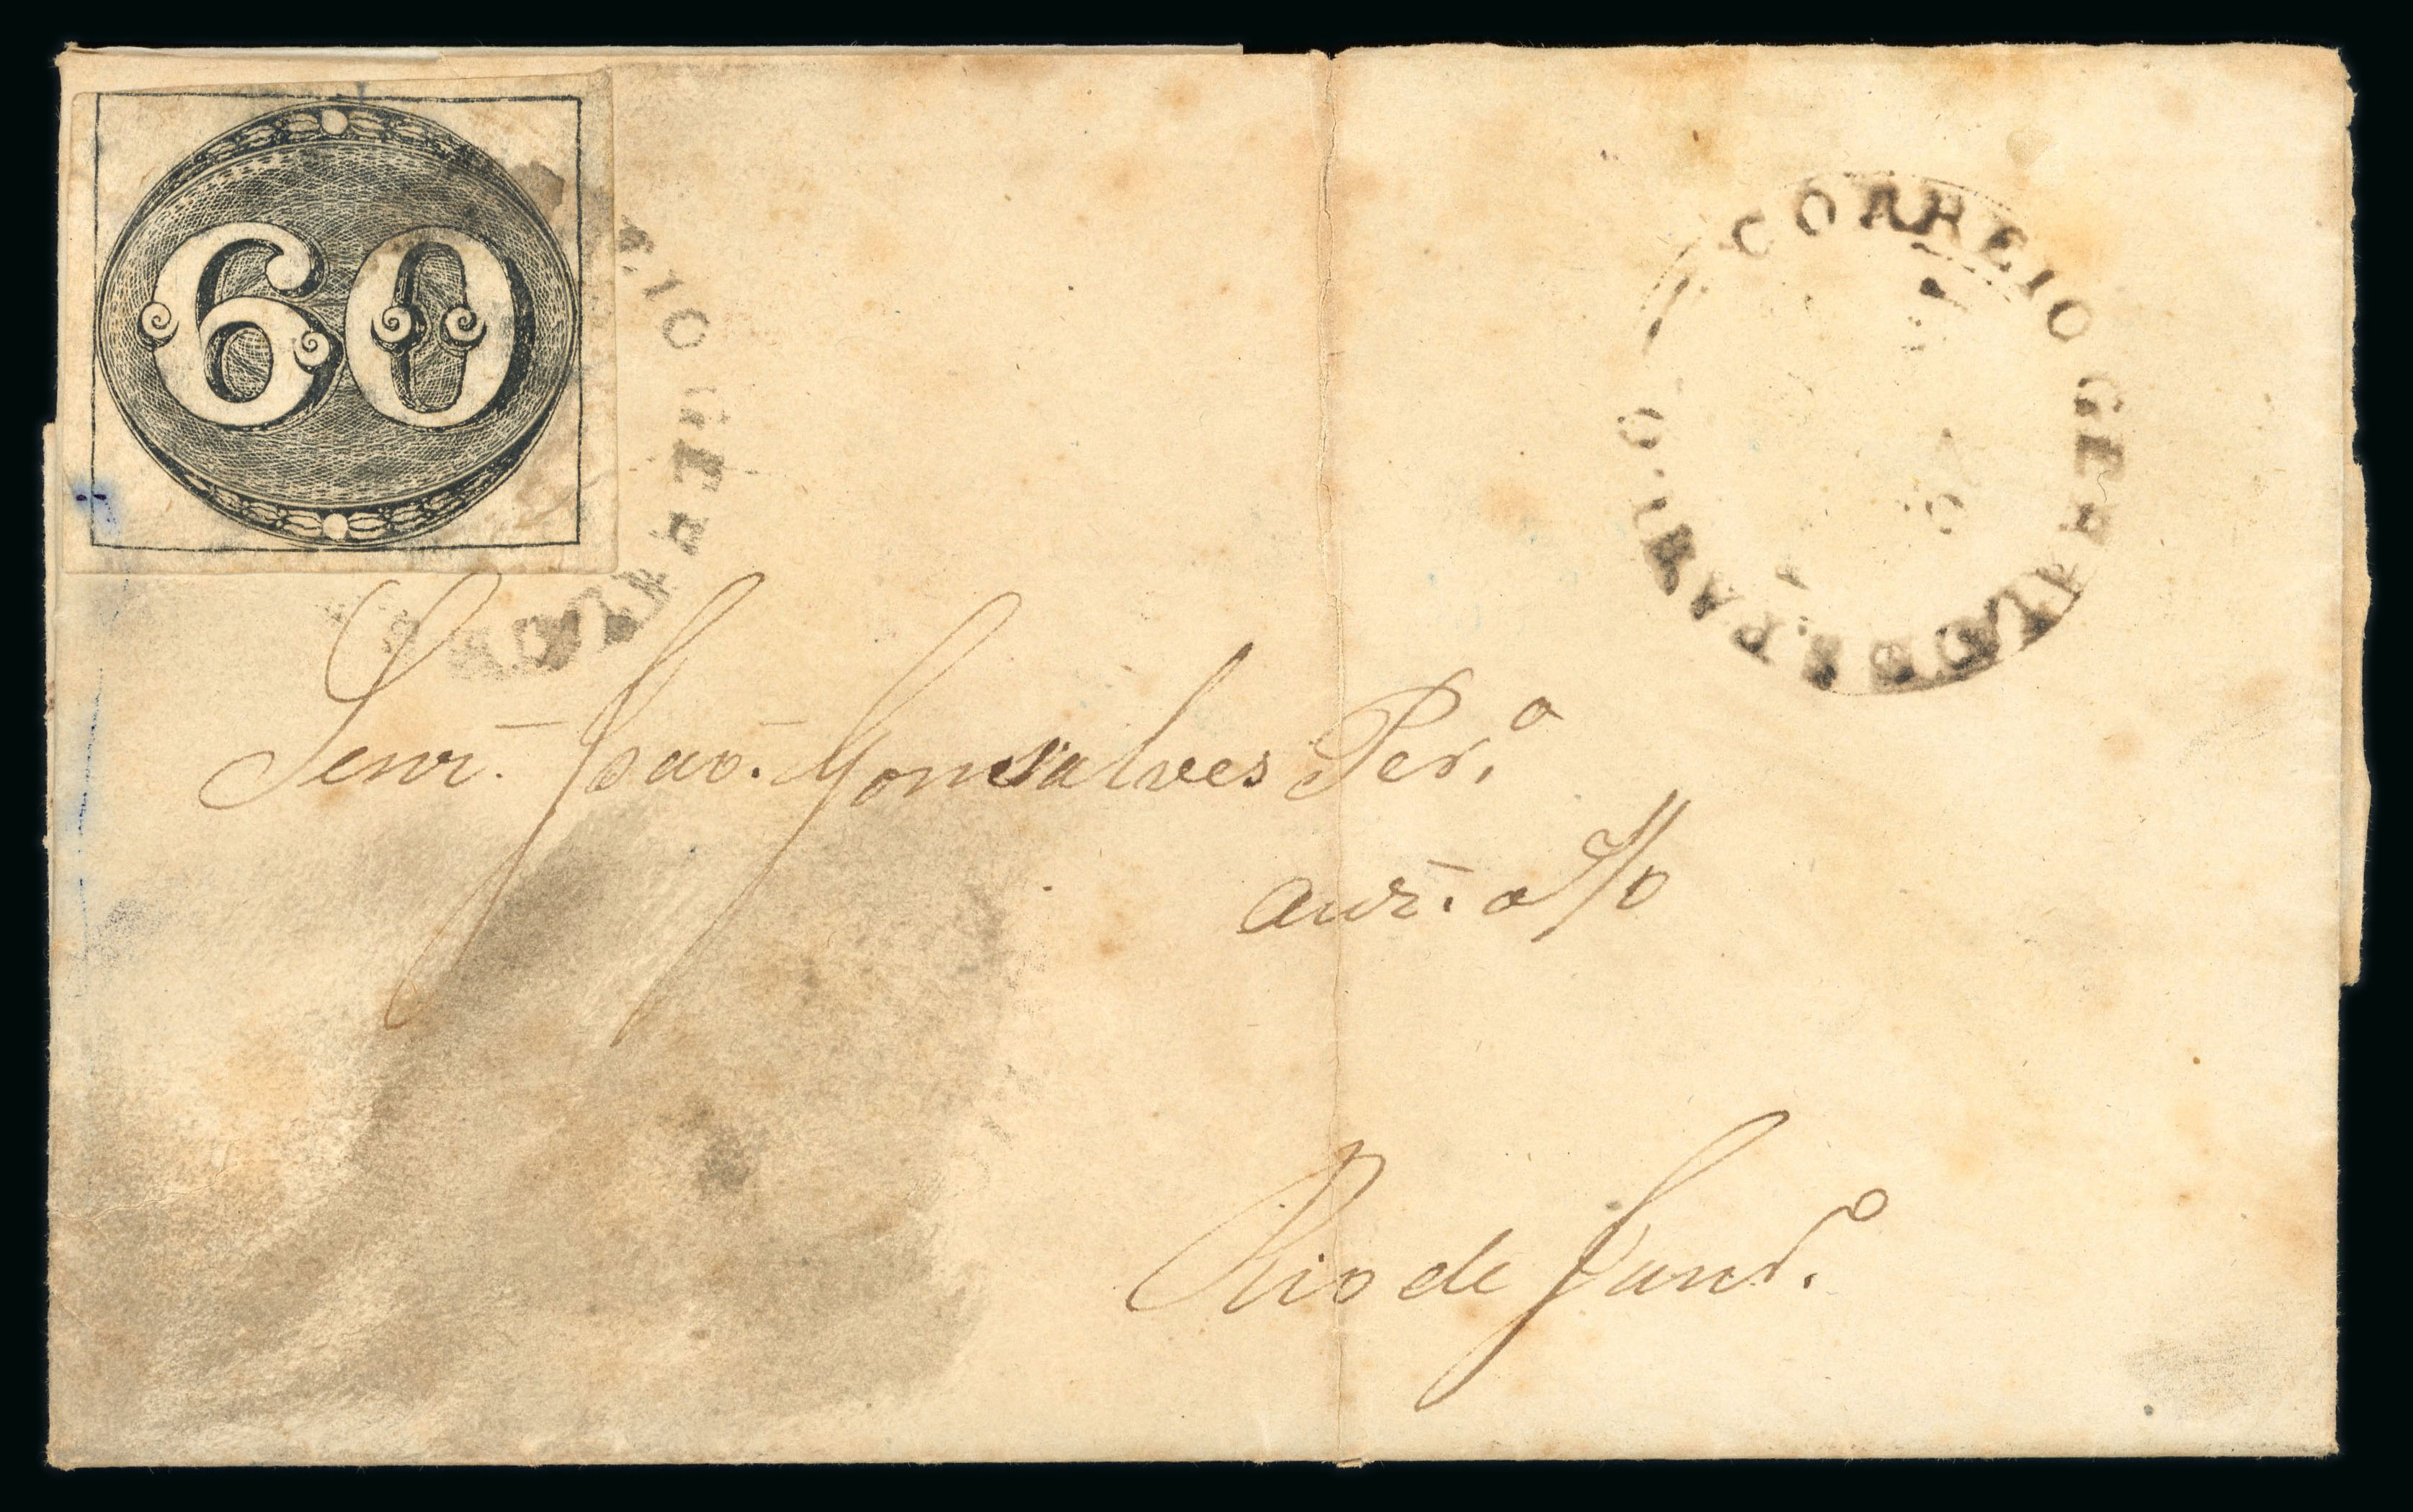 60
CORREIO GERAL DE S. PAULO.
EIO GERAL DE S.
Senr. João. Gonsalves Per.ª
auz.ª o/o
Rio de Janr.º